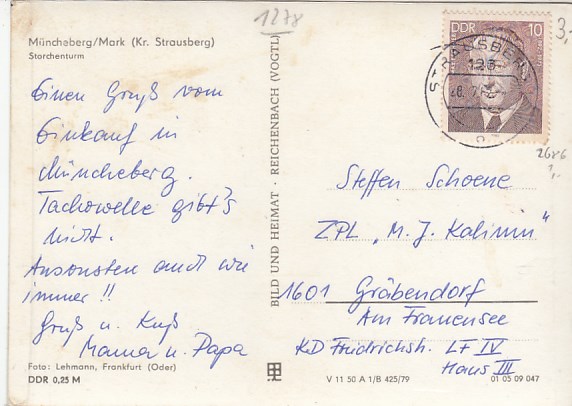 1278
Müncheberg/Mark (Kr. Strausberg)
Storchenturm
Einen Gruß vom
Einkauf in
Müncheberg.
Tachowelle gibt's
nicht.
Ansonsten auch wie
immer !!
Gruß u. Kuß
Mama u. Papa
Foto: Lehmann, Frankfurt (Oder)
DDR 0,25 M
BILD UND HEIMAT · REICHENBACH (VOGTL)
DDR 10
STRAUSBERG
126
3,-
2686
1,-
Steffen Schoene
ZPL „M. J. Kalinin"
1601 Gräbendorf
Am Frauensee
KD Friedrichsh. LF IV
Haus III
V 11 50 A 1/B 425/79
01 05 09 047